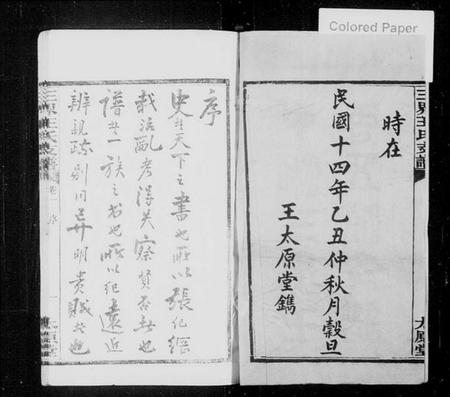 Colored Paper
時在
民國十四年乙丑仲秋月穀旦
王太原堂鐫
三界王氏支譜
太原堂
序
史者天下之書也所以張紀綱
載治亂考得失察賢否者也
譜者一族之書也所以紀遠近
辨親疏別同異明貴賤者也
卷一 序